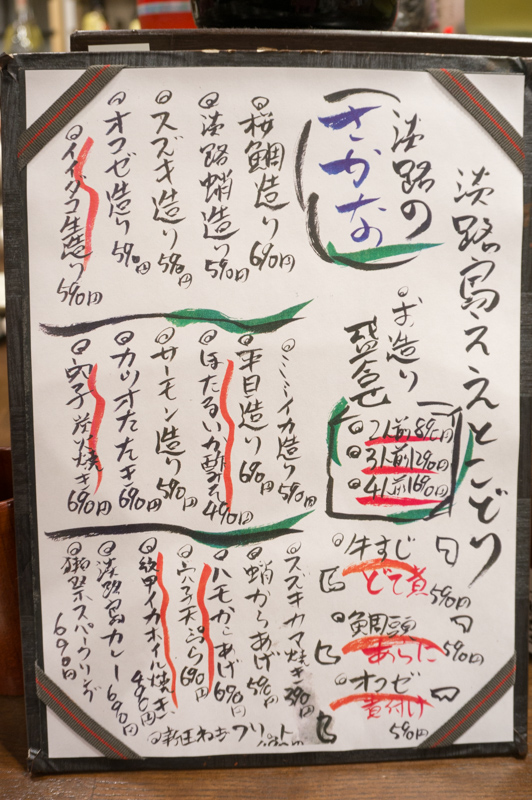 淡路島ええとこどり
淡路の
さかな
お造り
盛合せ
2人前890円
3人前1290円
4人前1690円
牛すじ
どて煮
590円
鯛頭
あらに
590円
オコゼ
煮付け
590円
桜鯛造り 690円
淡路蛸造り 590円
スズキ造り 590円
オコゼ造り 590円
イイダコ生造り 590円
ミミイカ造り 590円
平目造り 690円
ほたるいか酢みそ 490円
サーモン造り 590円
カツオたたき 690円
穴子 焼き 690円
スズキカマ焼き 390円
蛸からあげ 590円
ハモからあげ 690円
穴子天ぷら 690円
紋甲イカホイル焼き 490円
淡路島カレー 690円
スパークリング 690円
新玉ねぎフリット